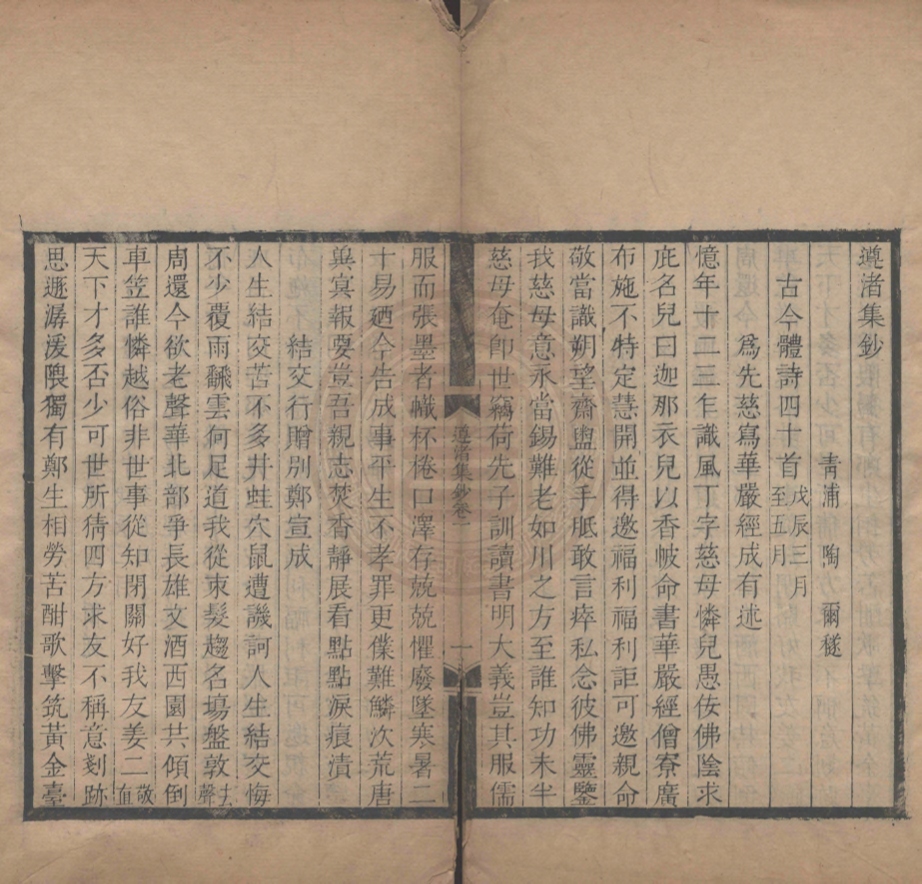 遵渚集鈔
青浦 陶爾穟
古今體詩四十首 戊辰三月至五月
爲先慈寫華嚴經成有述
憶年十二三乍識風丁字慈母憐兒愚佞佛陰求
庇名兒曰迦那衣兒以香帔命書華嚴經僧寮廣
布施不特定慧開並得邀福利福利詎可邀親命
敬當識朔望齋盥從手胝敢言瘁私念彼佛靈鑒
我慈母意永當錫難老如川之方至誰知功未半
慈母奄卽世竊荷先子訓讀書明大義豈其服儒
服而張墨者幟杯棬口澤存兢兢懼廢墜寒暑二
十易廼今告成事平生不孝罪更僕難鱗次荒唐
異冥報要豈吾親志焚香靜展看點點淚痕漬
結交行贈別鄭宣成
人生結交苦不多井蛙穴鼠遭譏訶人生結交悔
不少覆雨飜雲何足道我從束髮趨名場盤敦去聲
周還今欲老聲華北部爭長雄文酒西園共傾倒
車笠誰憐越俗非世事從知閉關好我友姜二敬血
天下才多否少可世所猜四方求友不稱意剗跡
思遯潺湲隈獨有鄭生相勞苦酣歌擊筑黃金臺
遵渚集鈔卷一
一